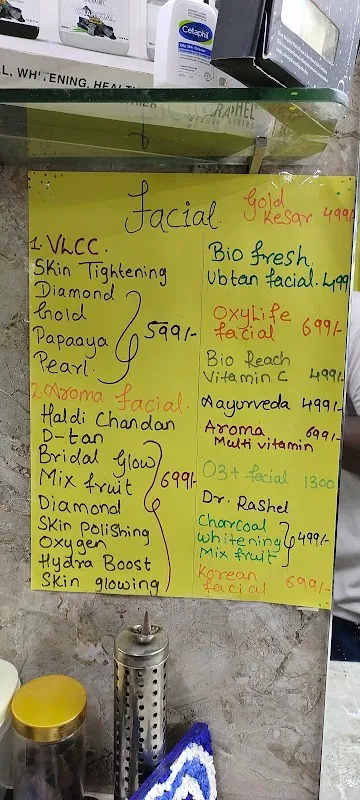 Cetaphil
L, WHITENING, HEALTH
Facial.
Gold
Kesar 499/-
1. VLCC.
Skin Tightening
Diamond
Gold
Papaaya
Pearl.
599/-
2. Aroma facial.
Haldi Chandan
D-tan
Bridal Glow
Mix fruit
Diamond
Skin polishing
Oxygen
Hydra Boost
Skin glowing
699/-
Bio fresh
Ubtan facial. 499
OxyLife
facial 699/-
Bio Reach
Vitamin C 499/-
Aayurveda 499/-
Aroma 699/-
Multi vitamin
O3+ facial 1300
Dr. Rashel
Charcoal
Whitening
Mix fruit
499/-
Korean
facial 699/-